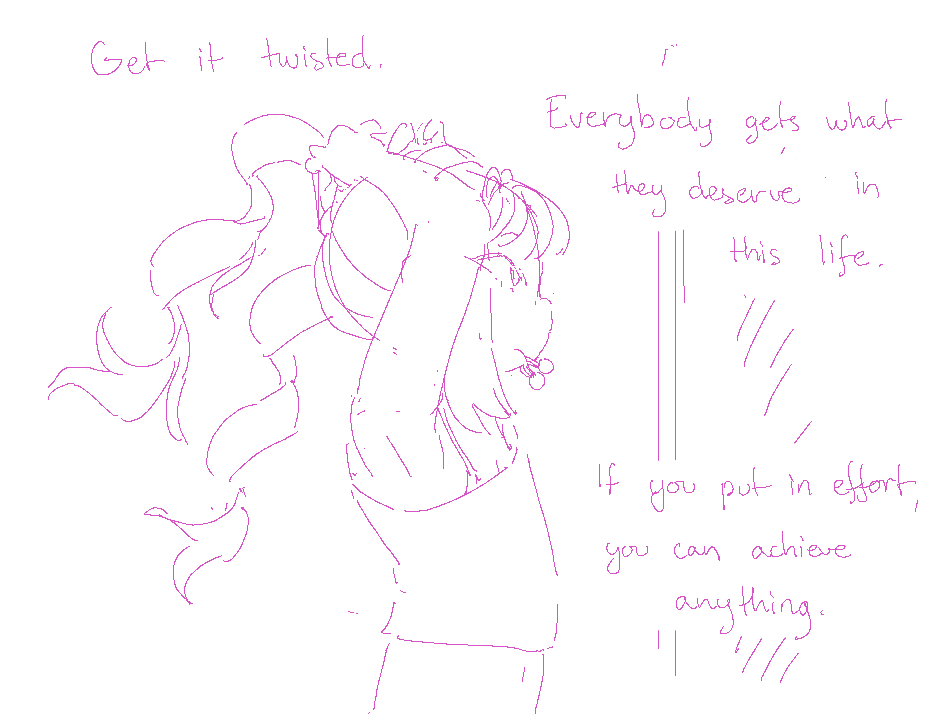 Get it twisted.
Everybody gets what
they deserve in
this life.
If you put in effort,
you can achieve
anything.